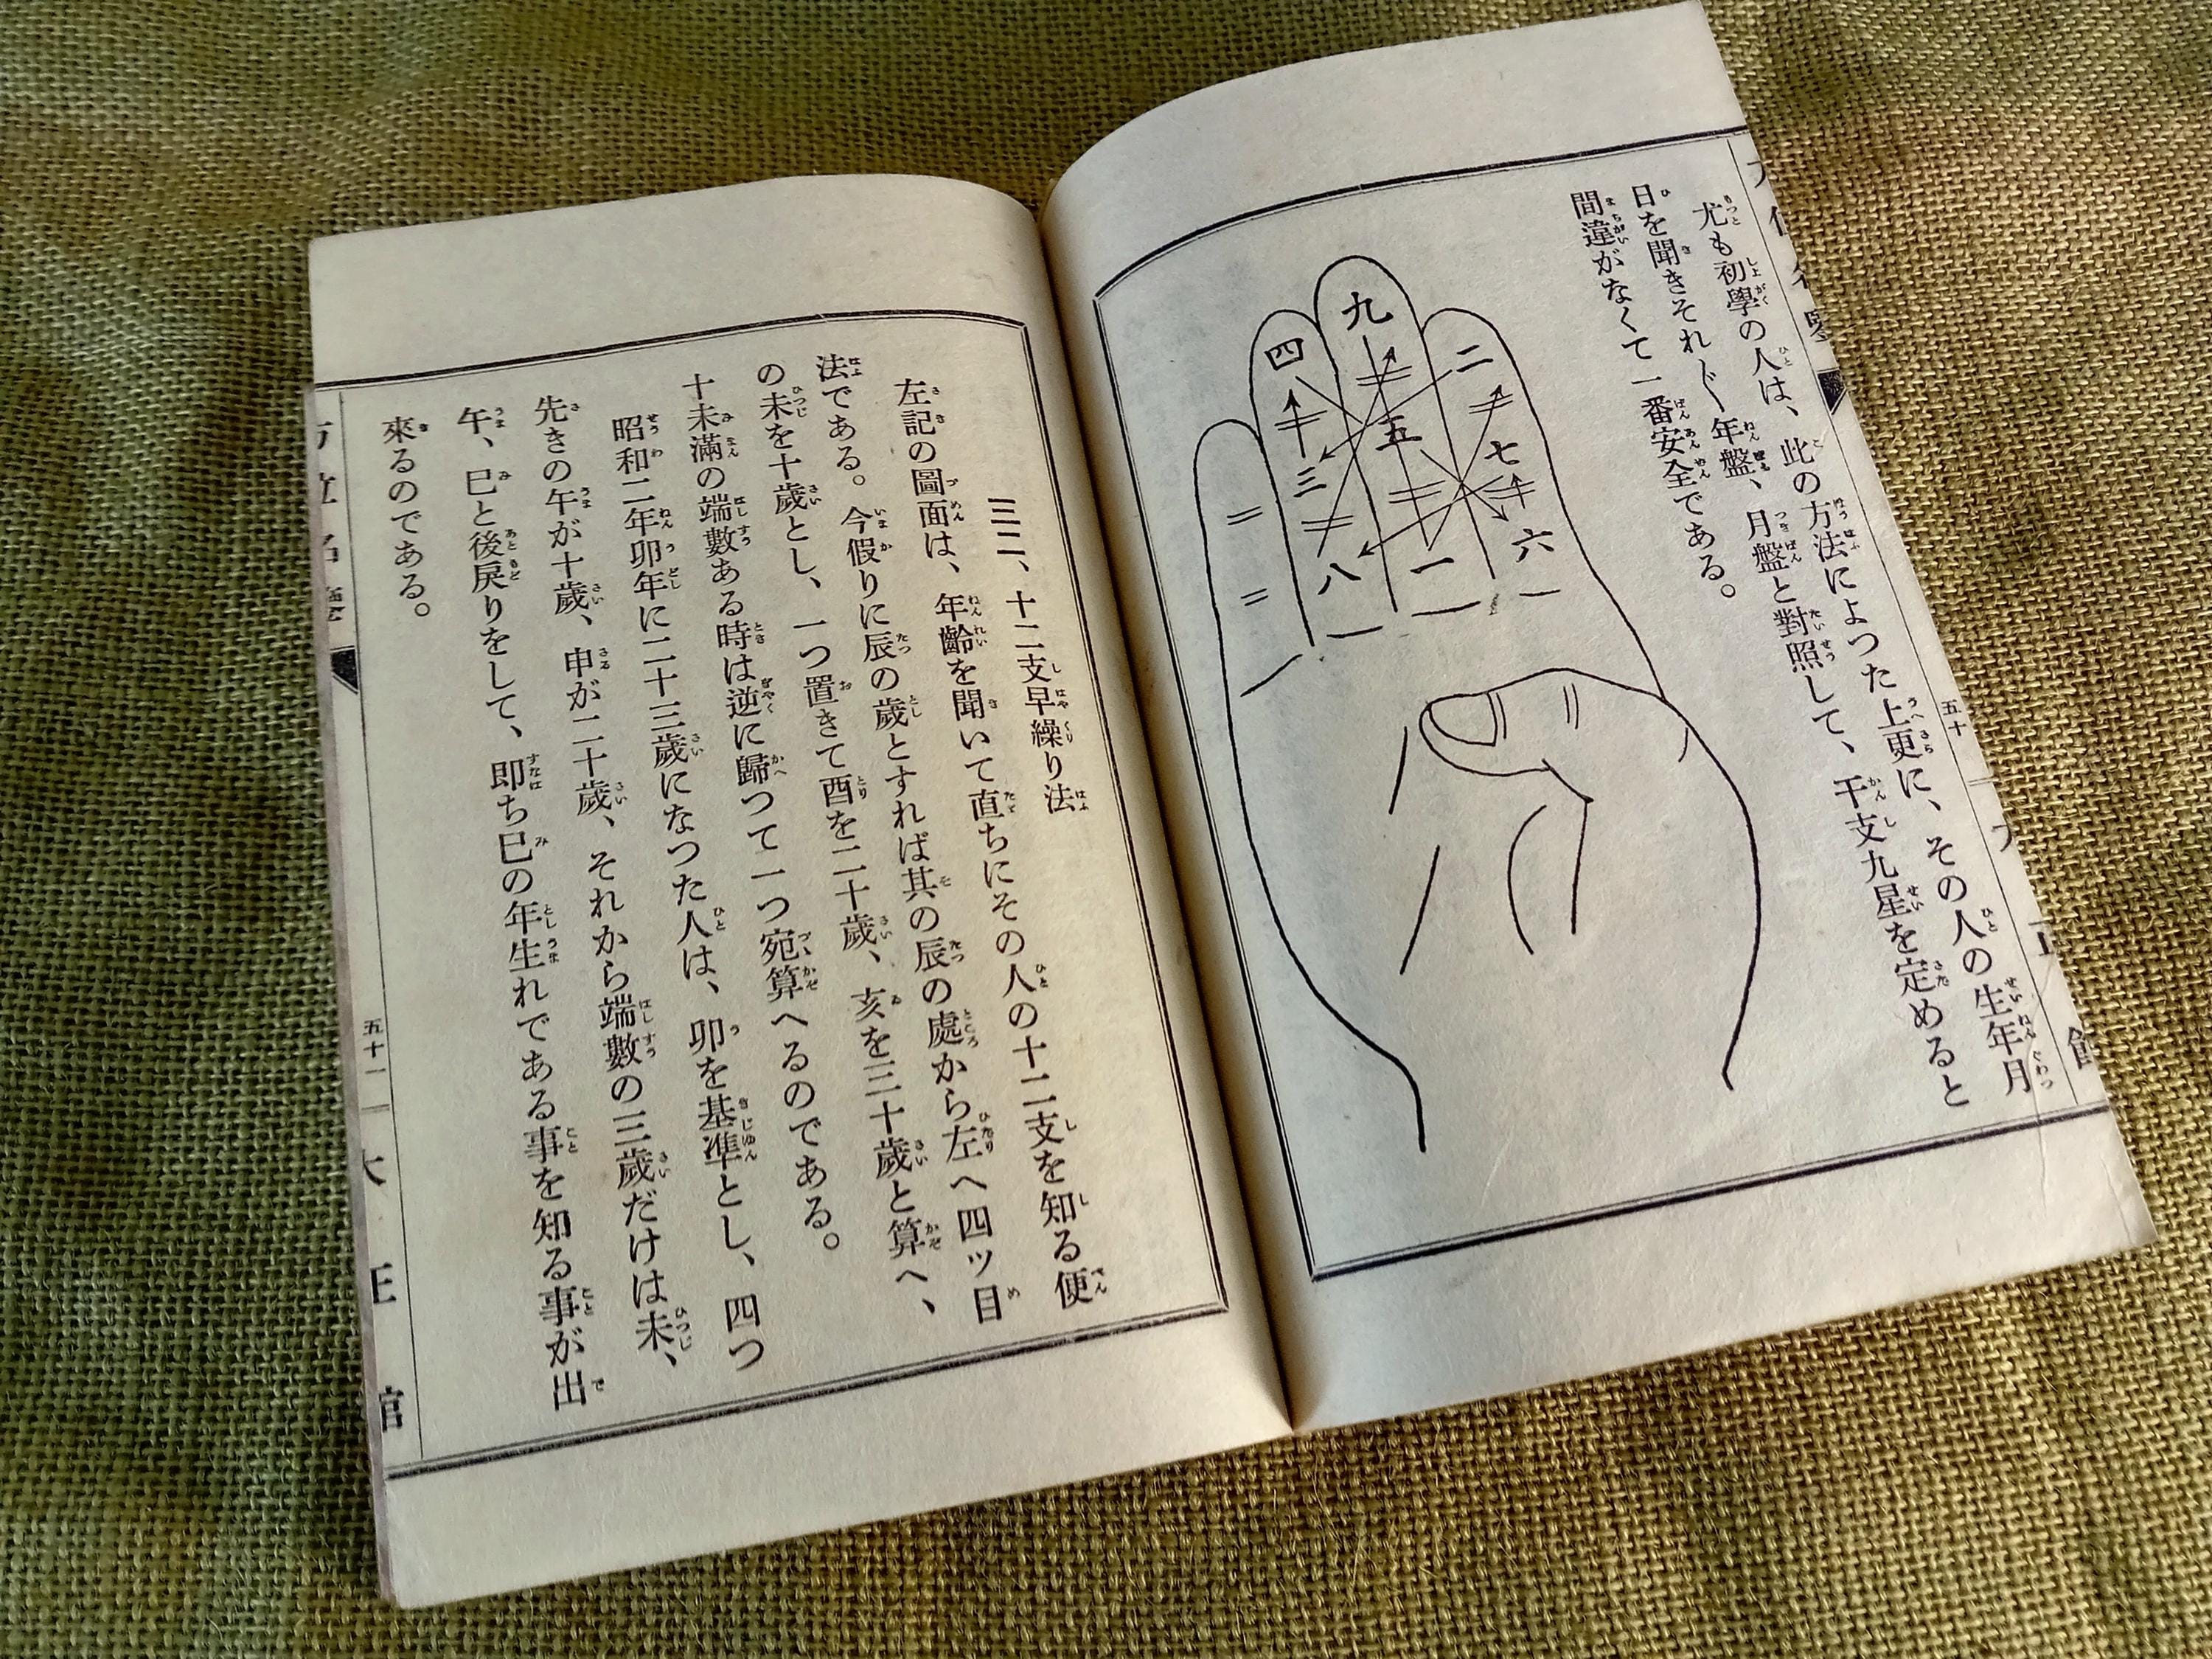 尤も初學の人は、此の方法によつた上更に、その人の生年月
日を聞きそれ〴〵年盤、月盤と對照して、干支九星を定めると
間違がなくて一番安全である。
四
九
二
三
五
七
八
一
六
五十
三二、十二支早繰り法
左記の圖面は、年齡を聞いて直ちにその人の十二支を知る便
法である。今假りに辰の歲とすれば其の辰の處から左へ四ッ目
の未を十歲とし、一つ置きて酉を二十歲、亥を三十歲と算へ、
十未滿の端數ある時は逆に歸つて一つ宛算へるのである。
昭和二年卯年に二十三歲になつた人は、卯を基準とし、四つ
先きの午が十歲、申が二十歲、それから端數の三歲だけは未、
午、巳と後戾りをして、即ち巳の年生れである事を知る事が出
來るのである。
五十一